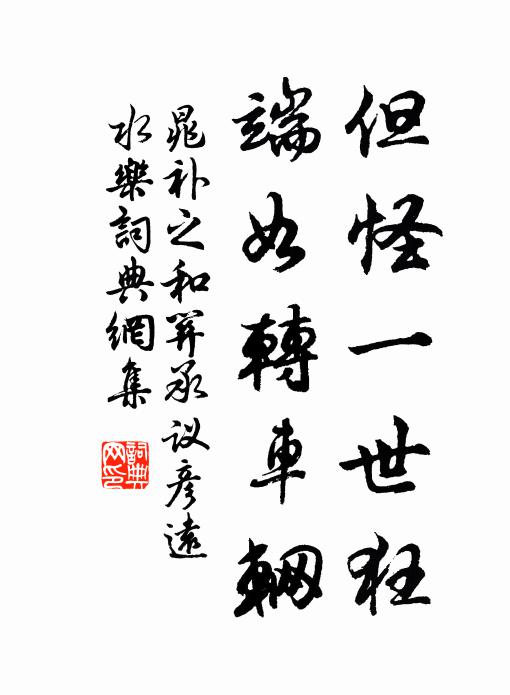 但怪一世狂
端如轉車輞
晁补之和關承议彦遠
水樂詞典網集
詞典网印